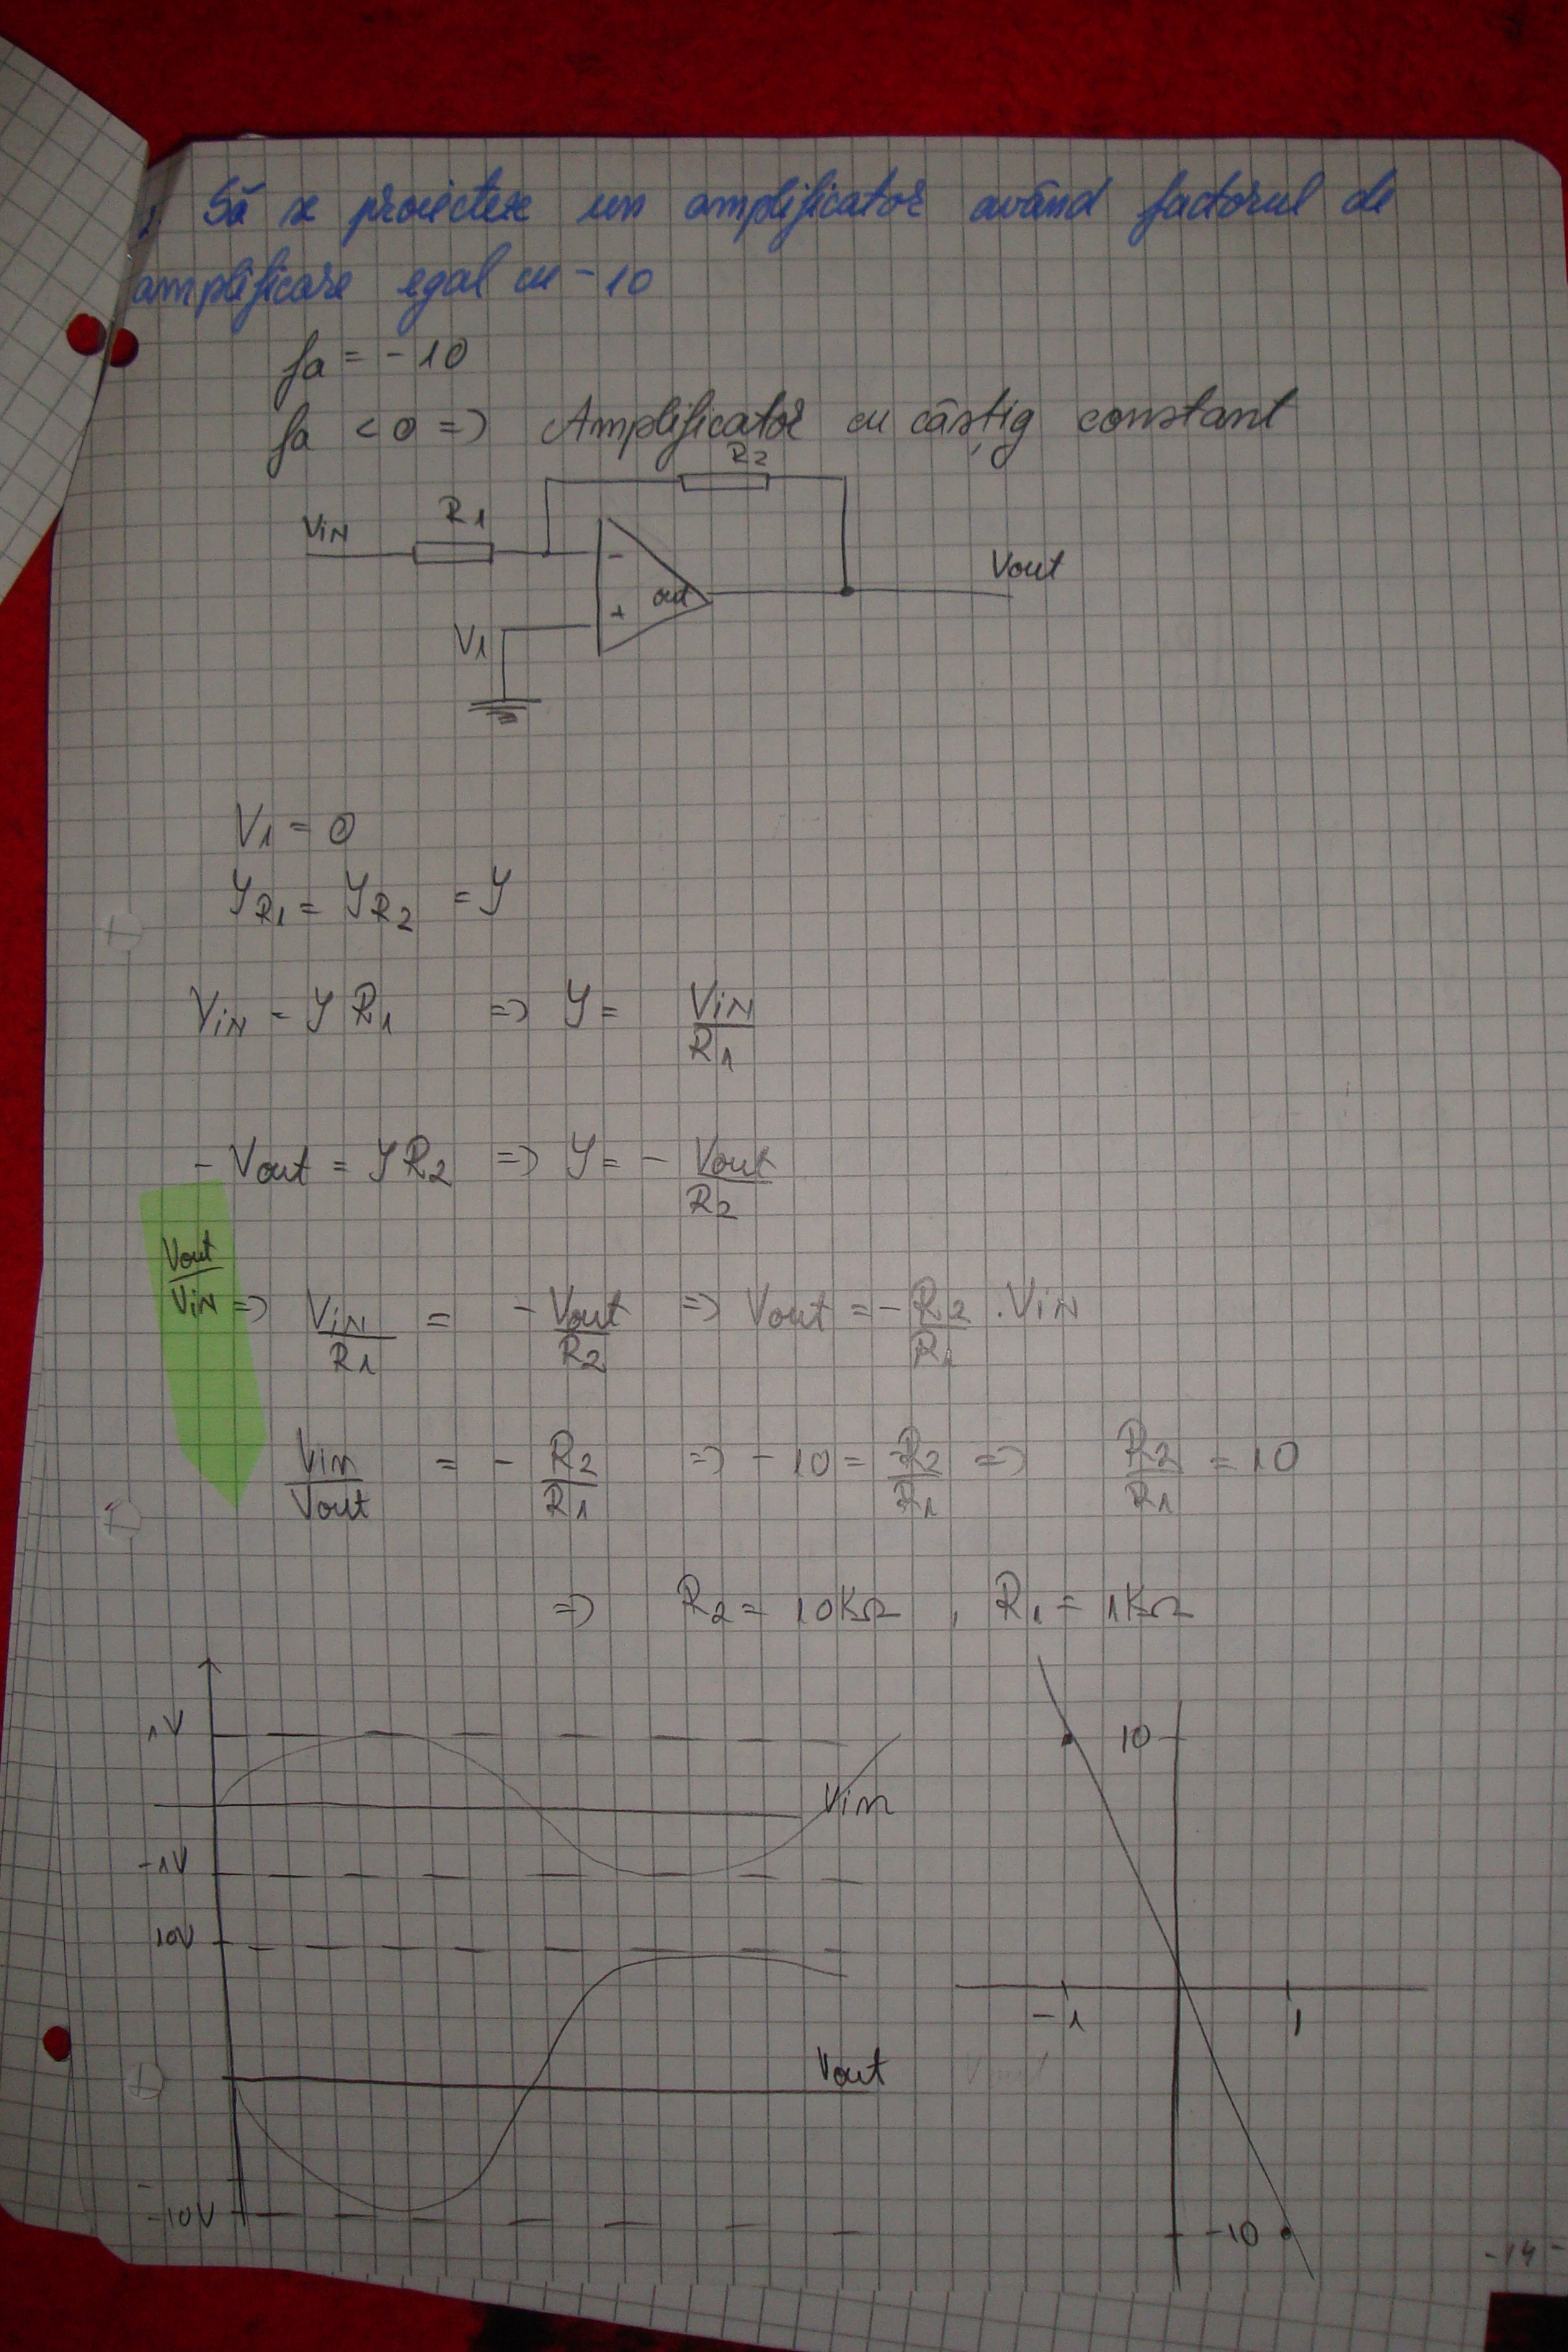 Să se proiecteze un amplificator având factorul de
amplificare egal cu -10
fa = -10
fa < 0 => Amplificator cu câștig constant
R2
R1
Vin
-
Vout
out
+
V1
V1 = 0
YR1 = YR2 = Y
Vin = Y R1 => Y = Vin/R1
- Vout = Y R2 => Y = - Vout/R2
Vout/Vin => Vin/R1 = - Vout/R2 => Vout = - R2/R1 . Vin
Vin/Vout = - R2/R1 => -10 = -R2/R1 => R2/R1 = 10
=> R2 = 10KΩ , R1 = 1KΩ
1V
10
Vin
-1V
10V
-1
1
Vout
-10V
-10
-14-